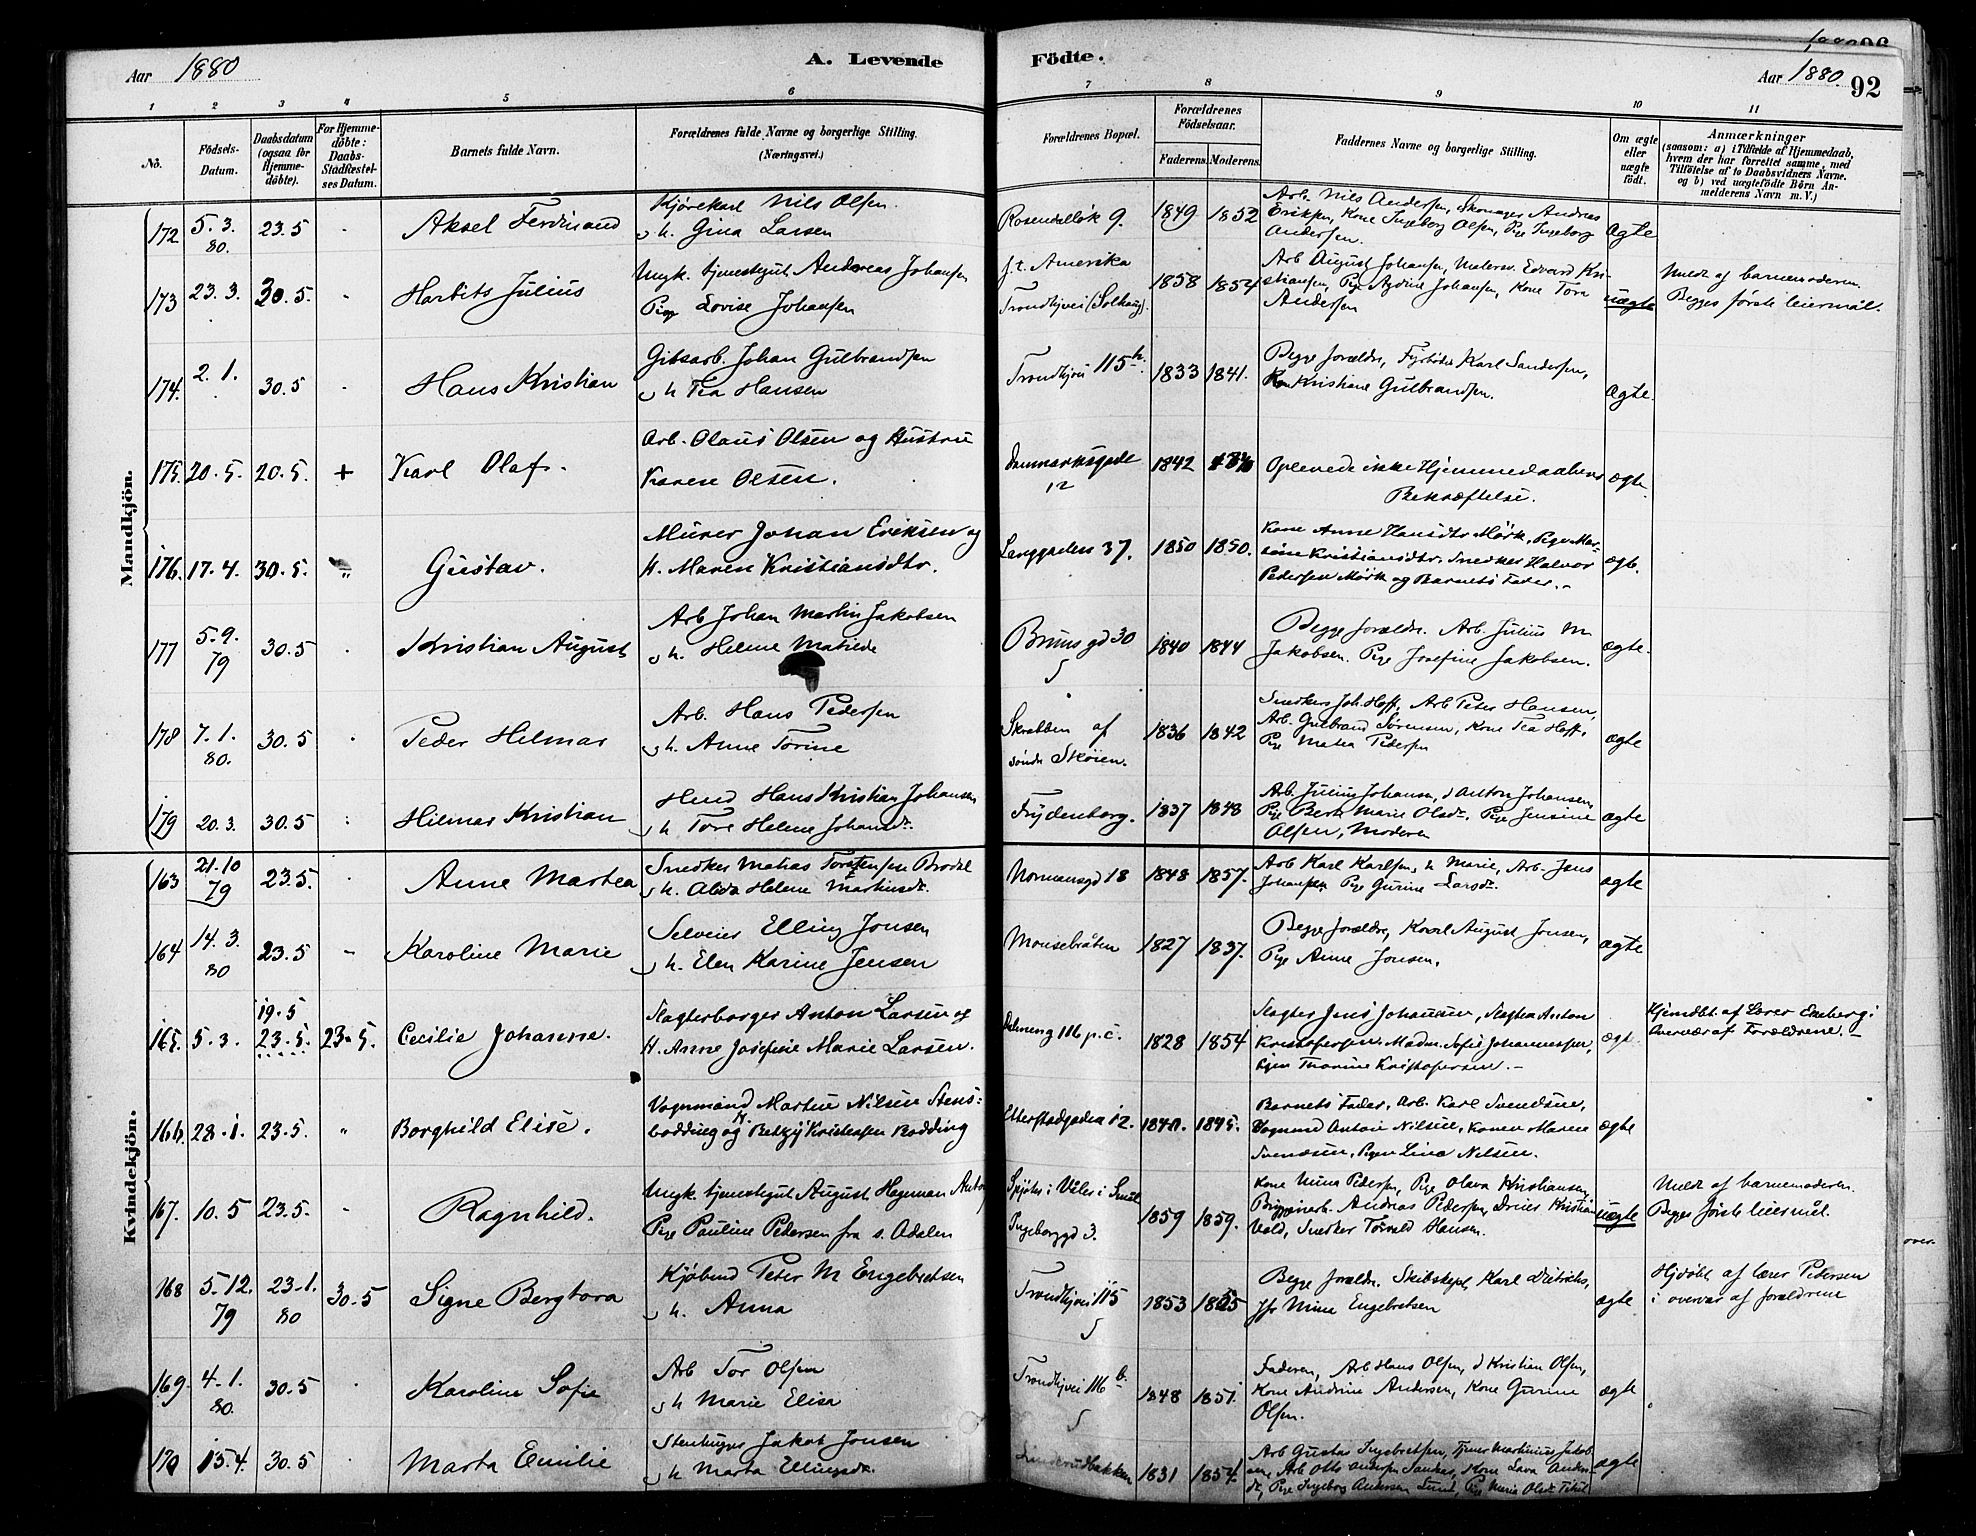 Aar 1880
A. Levende
Födte.
1880 96
Aar 1880. 92
1 2 3 4 5 6 7 8 9 10 11
No.
Födsels-Datum.
Daabsdatum (ogsaa for Hjemme-döbte).
For Hjemme-döbte: Daabs-Stadfæstel-ses Datum.
Barnets fulde Navn.
Forældrenes fulde Navne og borgerlige Stilling. (Næringsvei.)
Forældrenes Bopæl.
Forældrenes Födselsaar.
Faderens. Moderens.
Faddernes Navne og borgerlige Stilling.
Om ægte eller uægte födt.
Anmærkninger
(saasom: a) i Tilfælde af Hjemmedaab, hvem der har forrettet samme, med Tilföielse af to Daabsvidners Navne. og b) ved uægtefödte Börn An-melderens Navn m. V.)
Mandkjön.
172 5.3. 80. 23.5 - Aksel Ferdinand
Kjörekarl Nils Olsen.
h. Gina Larsen
Rosendalløk 9. 1849 1852
Arb. Nils Andersen, Skomager Andreas
Eriksen, Kone Ingeborg Olsen, Pige Ingeborg
Andersen.
ægte
173 23.3. 30.5. - Harbits Julius
Ungk. tjenestegut Andreas Johansen
Pige Lovise Johansen
f.t. Amerika
Trondhjvei (Solhaug). 1858 1854
Arb August Johansen, Malersv. Edvard Kri-
stiansen, Pige Johansen, Kone Tora
Andersen
uægte
Meldt af barnemoderen.
Begges første leiermål.
174. 2.1. 30.5 - Hans Kristian
Gibsarb. Johan Gulbrandsen
h Tea Hansen
Trondhjvei 115 h. 1833 1841.
Begge forældre, Fyrbøder Karl Sandersen,
Kone Kristiane Gulbrandsen.
ægte.
175. 20.5. 20.5. + Karl Olaf.
Arb. Olaus Olsen og Hustru
Karen Olsen.
Danmarksgade 12 1842 1840
Oplevede ikke Hjemmedaabens
Bekræftelse.
ægte.
176. 17.4. 30.5. " Gustav.
Murer Johan Eriksen og
H. Maren Kristiansdtr.
Langgaden 37. 1850 1850.
Kone Anne Hansdtr Mörk, Pige Mar-
Kristiansdtr. Snedker Halvor
Pedersen Mörk og Barnets Fader.-
ægte.
177 5.9. 79 30.5 . Kristian August
Arb Johan Martin Jakobsen
h. Helene Matilde
Bruns gd 30 5 1840 1844
Begge forældre. Arb. Julius M
Jakobsen. Pige Josefine Jakobsen.
ægte.
178 7.1. 80. 30.5 . Peder Hilmar
Arb. Hans Pedersen
h. Anne Torine
Skrabben af
søndr Skøien. 1836 1842
Snedker Joh. Hoff, Arb Peter Hansen,
Arb. Gulbrand Sørensen, Kone Tea Hoff,
Pige Matea Pedersen
ægte
179 20.3. 30.5 : Hilmar Kristian
Hans Kristian Johansen
h Tore Helene Johansdt.
Frydenborg. 1837 1848
Arb. Julius Johansen, d Anton Johansen,
Pige Berte Marie Olsdt, Pige Jensine
Olsen, Moderen
ægte
Kvindekjön.
163 21.10 79 23.5. - Anne Martea
Snedker Matias Torstensen Brodal
h. Helene Martinsdt.
Normansgd 18 1848 1857.
Arb Karl Karlsen, h Marie, Arb. Jens
Johansen Pige Gurine Larsdt.
ægte
164 14.3. 80 23.5 - Karoline Marie
Selveier Elling Jonsen
h. Elen Karine Jensen
Monsebråten 1827 1837.
Begge forældre, Karl August Jonsen,
Pige Anne Jonsen.
ægte
165. 5.3. 19.5 23.5. 23.5. Cecilie Johanne.
Slagterborger Anton Larsen og
H. Anne Josefine Marie Larsen.
116 p.c. 1828 1854
Slagter Jens Johansen, Slagter Anton
Kristofersen. Madm. Sofie Johannessen,
Pigen Thorine Kristofersen.-
ægte.
Hjemdbt. af Lærer Enberg i
Overvær af Forældrene.-
166. 28.1. 23.5. " Borghild Elise.
Vognmand Martin Nilsen Stens:
bodding og H. Betzy Kristensen Bodding
Etterstadgaden 12. 1840. 1845.
Barnets Fader, Arb. Karl Svendsen,
Vognmd Anton Nilsen, Konen Maren
Svendsen, Pigen Line Nilsen.
ægte
167. 10.5 23.5. - Ragnhild.
Ungk. tjenestegut August Hagerman
Pige Pauline Pedersen fra s. Adalen
i Våler i Smål
Ingeborggd 3. 1859 1859.
Kone Mina Pedersen, Pige Olava Kristiansen,
Bryggeriarb. Andreas Pedersen, Dreier Kristian
Vold, Snedker Torvald Hansen.
uægte
Meldt af barnemoderen.
Begges første leiermål.
168 5.12. 79 23.1. 80 30.5 Signe Bergtora
Kjøbmd Peter M Engebretsen
h. Anna
Trondhjvei 115 5 1853 1855
Begge forældre. Skibskpt Karl Dietrichs,
Jfr Mina Engebretsen
ægte
Hjdøbt af lærer Pedersen
i overvær af forældrene
169. 4.1. 80. 30.5 . Karoline Sofie
Arb Tor Olsen
h Marie Elisa
Trondhjvei 116 b. 5 1848 1851
Faderen, Arb Hans Olsen, d Kristian Olsen,
Kone Andrine Andersen, Kone Gurine
Olsen.
ægte
170 15.4. 30.5 . Marta Emilie
Stenhugger Jakob Jonsen
h Marta Ellingsdt.
Linderudbakken 1831 1854.
Arb Gustav Ingebretsen, Tjener Martinius Jakob-
sen, Arb Otto Andersen Sandnes, Kone Lava Anders-
dt, Pige Ingeborg Andersen Lund, Pige Maria Olsdt
ægte